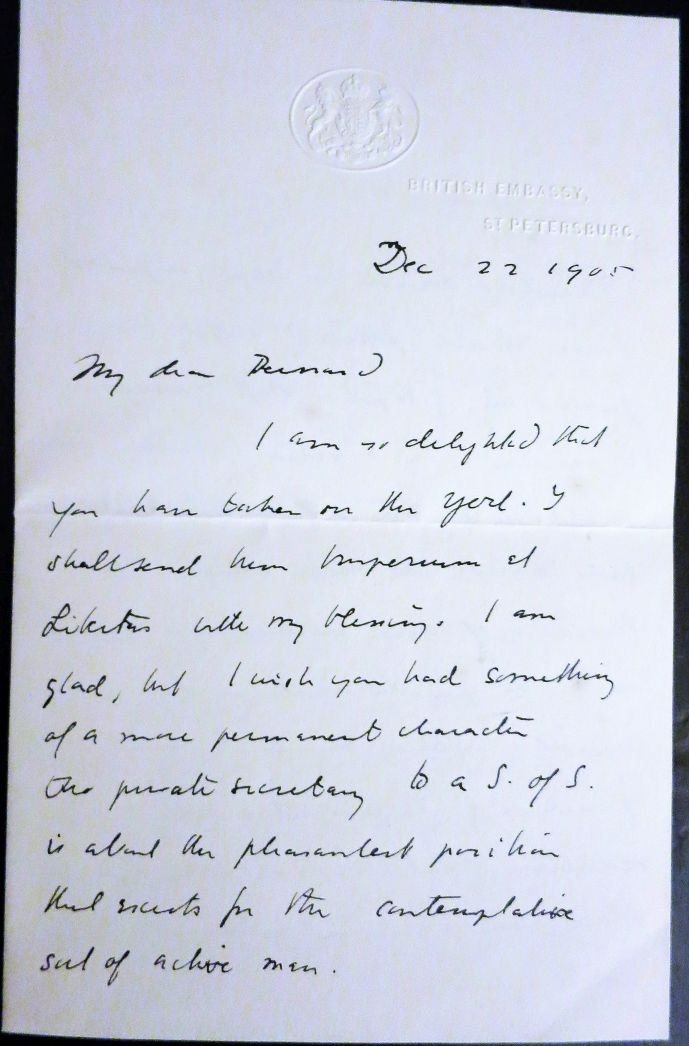 BRITISH EMBASSY,
ST PETERSBURG.
Dec 22 1905
My dear Bernard
I am so delighted that
you have taken on the
shall send him Imperium et
Libertas with my blessing. I am
glad, but I wish you had something
of a more permanent character
tho private secretary to a S. of S.
is about the pleasantest position
that exists for the contemplative
sort of active man.